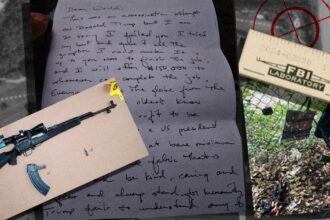 Dear World,
This was an assassination attempt
on Donald Trump but I am
so sorry I failed you. I tried
my best and gave it all the
gumption I could muster. It
is up to you now to finish the job,
and I will offer $150,000
complete the job.
Everyone the globe from the
oldest knows
to be
US president
bare minimum
fabric that is
be kind, caring and
and always stand for humanity
Trump fails to understand any of
FBI
LABORATORY